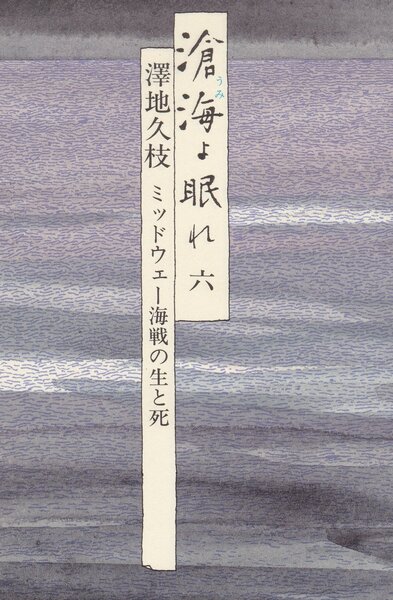 滄海よ眠れ 六
うみ
澤地久枝 ミッドウェー海戦の生と死